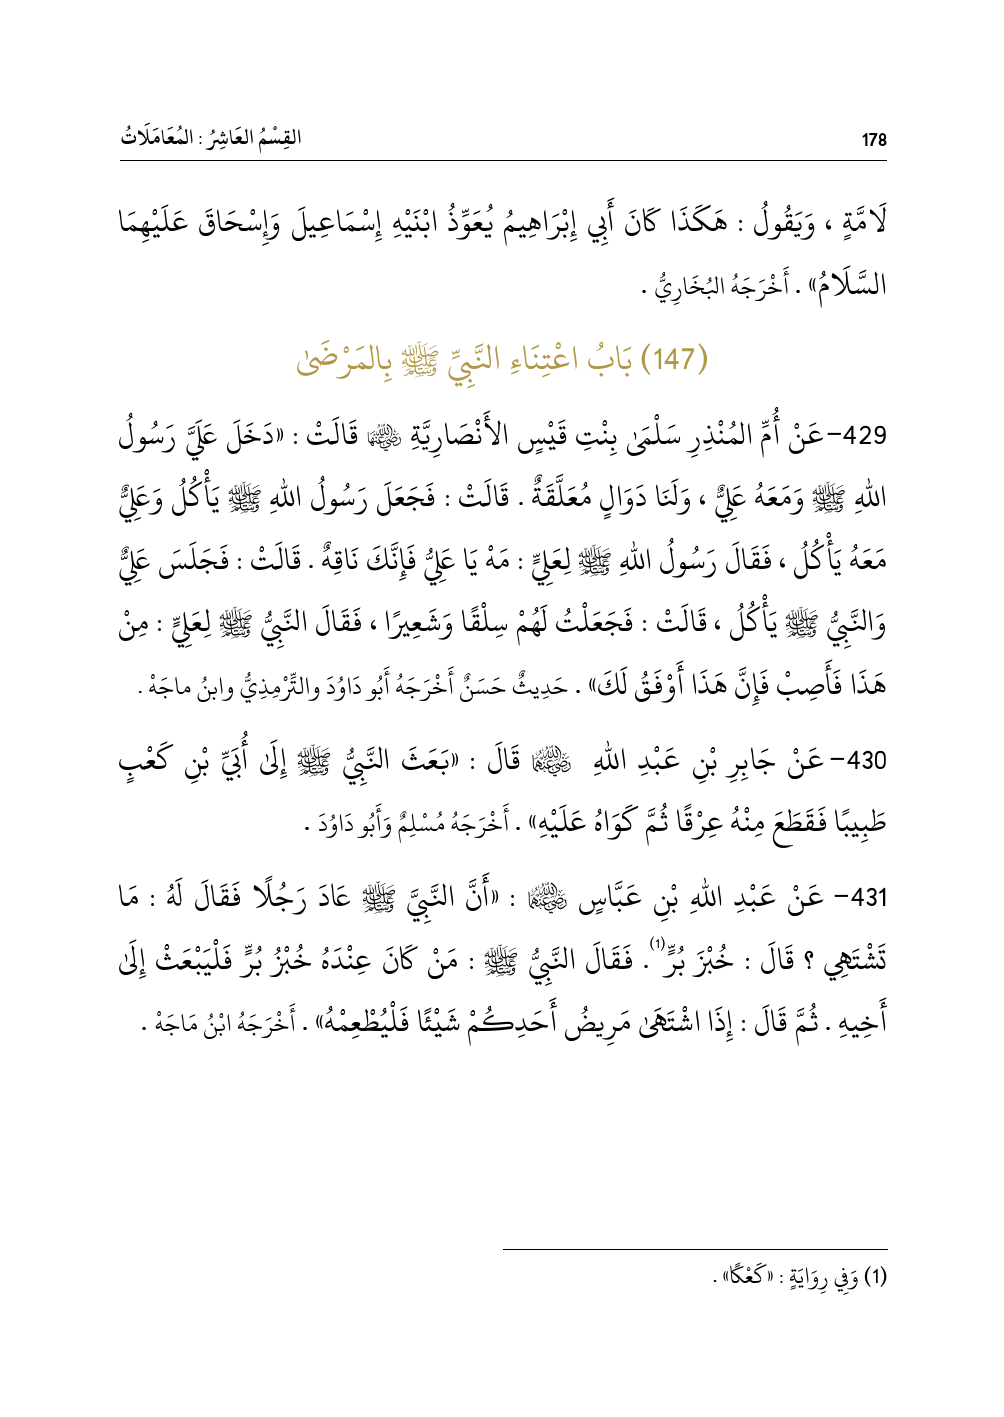 178
القِسْمُ العَاشِرُ : المُعَامَلَاتُ
لَامَّةٍ ، وَيَقُولُ : هَكَذَا كَانَ أَبِي إِبْرَاهِيمُ يُعَوِّذُ ابْنَيْهِ إِسْمَاعِيلَ وَإِسْحَاقَ عَلَيْهِمَا
السَّلَامُ» . أَخْرَجَهُ البُخَارِيُّ .
(147) بَابُ اعْتِنَاءِ النَّبِيِّ ﷺ بِالمَرْضَىٰ
429- عَنْ أُمِّ المُنْذِرِ سَلْمَىٰ بِنْتِ قَيْسٍ الأَنْصَارِيَّةِ رضي الله عنها قَالَتْ : «دَخَلَ عَلَيَّ رَسُولُ
اللهِ ﷺ وَمَعَهُ عَلِيٌّ ، وَلَنَا دَوَالٍ مُعَلَّقَةٌ . قَالَتْ : فَجَعَلَ رَسُولُ اللهِ ﷺ يَأْكُلُ وَعَلِيٌّ
مَعَهُ يَأْكُلُ ، فَقَالَ رَسُولُ اللهِ ﷺ لِعَلِيٍّ : مَهْ يَا عَلِيُّ فَإِنَّكَ نَاقِهٌ . قَالَتْ : فَجَلَسَ عَلِيٌّ
وَالنَّبِيُّ ﷺ يَأْكُلُ ، قَالَتْ : فَجَعَلْتُ لَهُمْ سِلْقًا وَشَعِيرًا ، فَقَالَ النَّبِيُّ ﷺ لِعَلِيٍّ : مِنْ
هَذَا فَأَصِبْ فَإِنَّ هَذَا أَوْفَقُ لَكَ» . حَدِيثٌ حَسَنٌ أَخْرَجَهُ أَبُو دَاوُدَ والتِّرْمِذِيُّ وابنُ ماجَهْ .
430- عَنْ جَابِرِ بْنِ عَبْدِ اللهِ رضي الله عنهما قَالَ : «بَعَثَ النَّبِيُّ ﷺ إِلَىٰ أُبَيِّ بْنِ كَعْبٍ
طَبِيبًا فَقَطَعَ مِنْهُ عِرْقًا ثُمَّ كَوَاهُ عَلَيْهِ» . أَخْرَجَهُ مُسْلِمٌ وَأَبُو دَاوُدَ .
431- عَنْ عَبْدِ اللهِ بْنِ عَبَّاسٍ رضي الله عنهما : «أَنَّ النَّبِيَّ ﷺ عَادَ رَجُلًا فَقَالَ لَهُ : مَا
تَشْتَهِي ؟ قَالَ : خُبْزَ بُرٍّ(1). فَقَالَ النَّبِيُّ ﷺ : مَنْ كَانَ عِنْدَهُ خُبْزُ بُرٍّ فَلْيَبْعَثْ إِلَىٰ
أَخِيهِ . ثُمَّ قَالَ : إِذَا اشْتَهَىٰ مَرِيضُ أَحَدِكُمْ شَيْئًا فَلْيُطْعِمْهُ» . أَخْرَجَهُ ابْنُ مَاجَهْ .
(1) وَفِي رِوَايَةٍ : «كَعْكًا» .